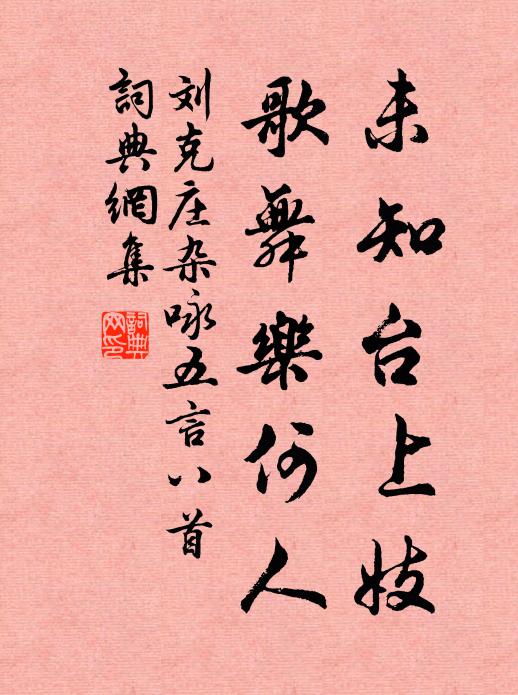 未知台上妓
歌舞樂何人
刘克庄杂咏五言八首
詞典網集
詞典网印